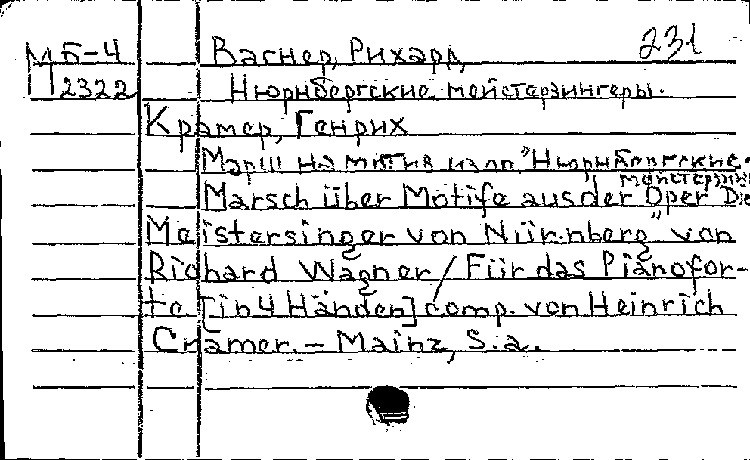 МБ-4 Вагнер, Рихард, 231
2322 Нюрнбергские мейстерзингеры.
Крамер, Генрих
Марш на мотив из оп. "Нюрнбергские
мейстерзин
Marsch über Motife aus der Oper "Die
Meistersinger von Nürnberg" von
Richard Wagner / Für das Pianofor-
te [in 4 Händen] comp. von Heinrich
Cramer. - Mainz, S.a.